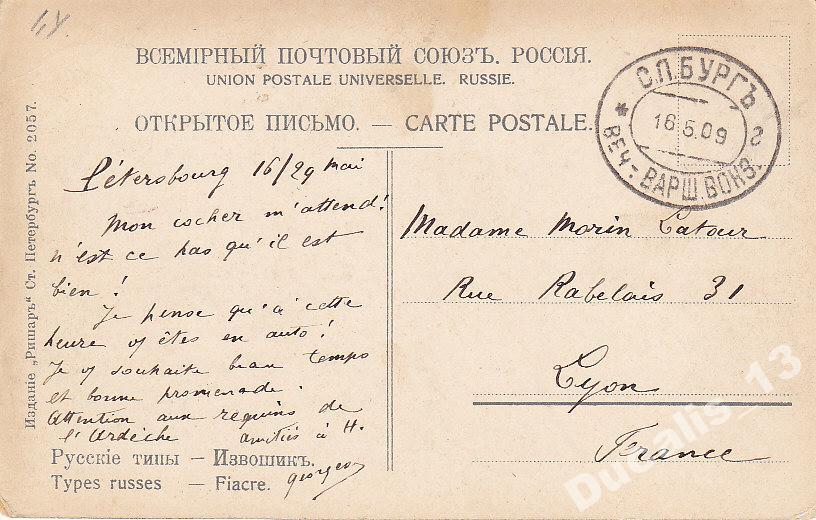 ВСЕМІРНЫЙ ПОЧТОВЫЙ СОЮЗЪ. РОССІЯ.
UNION POSTALE UNIVERSELLE. RUSSIE.
ОТКРЫТОЕ ПИСЬМО. — CARTE POSTALE.
С.П.БУРГЪ
16.5.09
2
* ВЕЧ.-ВАРШ.ВОКЗ.
Pétersbourg 16/29 mai
Mon cocher m'attend!
n'est ce pas qu'il est
bien!
Je pense qu'à cette
heure vs êtes en auto!
Je vs souhaite beau temps
et bonne promenade.
Attention aux requins de
l'Ardèche amitiés à H.
Georges
Madame Morin Latour
Rue Rabelais 31
Lyon
France
Русскіе типы — Извошикъ.
Types russes — Fiacre.
Изданіе „Ришаръ“ Ст. Петербургъ No. 2057.
Ducalis_13